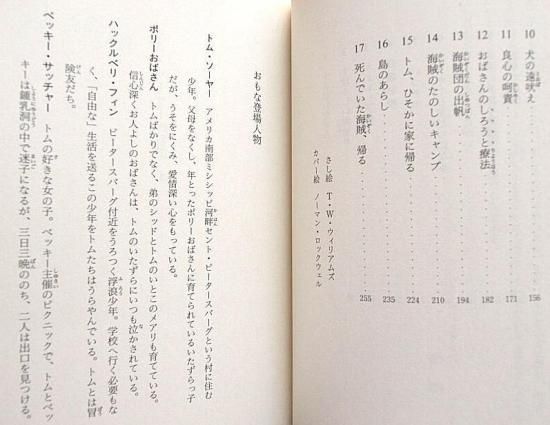 10 犬の遠吠え 156
11 良心の呵責 171
12 おばさんのしろうと療法 182
13 海賊団の出帆 194
14 海賊のたのしいキャンプ 210
15 トム、ひそかに家に帰る 224
16 島のあらし 235
17 死んでいた海賊、帰る 255
さし絵 T・W・ウィリアムズ
カバー絵 ノーマン・ロックウェル
おもな登場人物
トム・ソーヤー アメリカ南部ミシシッピ河畔セント・ピータースバーグという村に住む
少年。父母をなくし、年とったポリーおばさんに育てられているいたずらっ子
だが、うそをにくみ、愛情深い心をもっている。
ポリーおばさん トムばかりでなく、弟のシッドとトムのいとこのメアリも育てている。
信心深くお人よしのおばさんは、トムのいたずらにいつも泣かされている。
ハックルベリ・フィン ピータースバーグ付近をうろつく浮浪少年。学校へ行く必要もな
く、「自由な」生活を送るこの少年をトムたちはうらやんでいる。トムとは冒
険友だち。
ベッキー・サッチャー トムの好きな女の子。ベッキー主催のピクニックで、トムとベッ
キーは鍾乳洞の中で迷子になるが、三日三晩ののち、二人は出口を見つける。